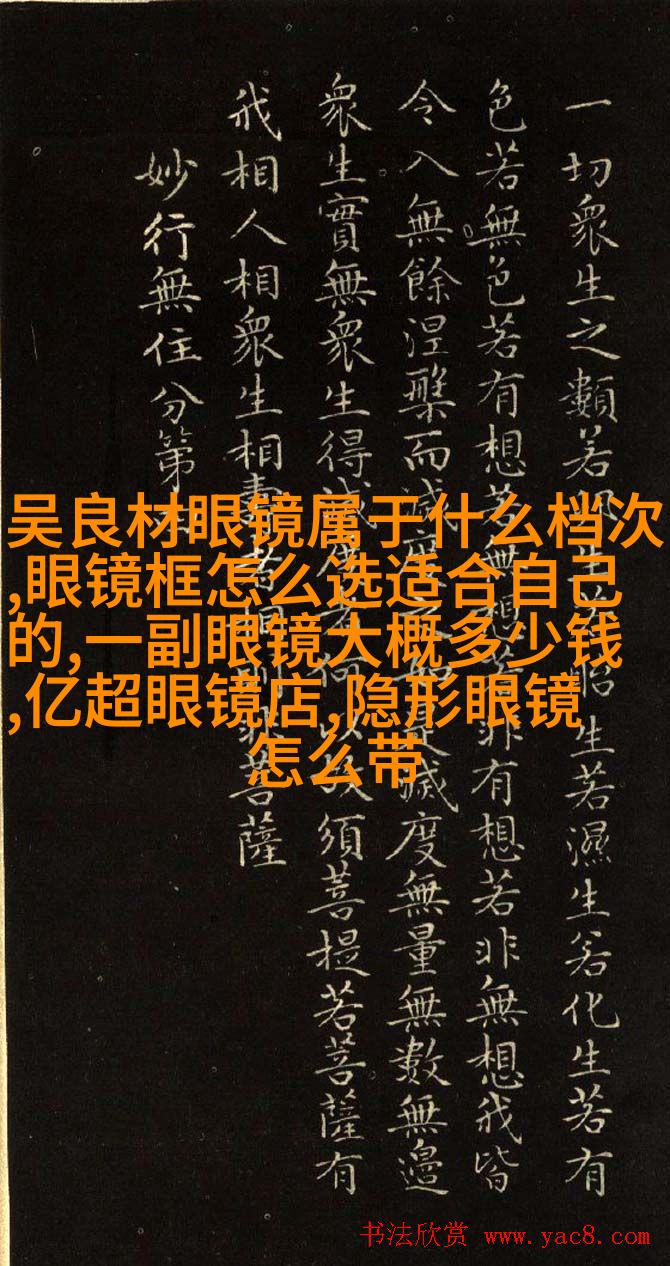 一切衆生之類若卵生若胎生若濕生若化生若有
色若無色若有想若無想若非有想若非無想我皆
令入無餘涅槃而滅度之如是滅度無量無數無邊
衆生實無衆生得滅度者何以故須菩提若菩薩有
我相人相衆生相壽者相即非菩薩
妙行無住分第
吴良材眼镜属于什么档次
,眼镜框怎么选适合自己
的,一副眼镜大概多少钱
,亿超眼镜店,隐形眼镜
怎么带
书法欣赏 www.yac8.com